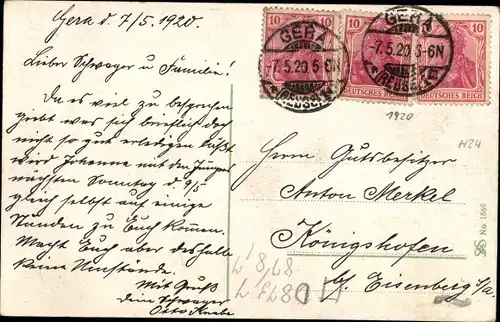 Gera d. 7/5. 1920.
Lieber Schwager u Familie!
Da es viel zu besprechen
giebt was sich brieflich doch
nicht so gut erledigen läßt
wird Johanna mit den Jungen
nächsten Sonntag d. 9/5
gleich selbst auf einige
Stunden zu Euch kommen.
Macht Euch aber deshalb
keine Umstände.
Mit Gruß
Dein Schwager
Otto
10 10
10 10
10
DEUTSCHES REICH
DEUTSCHES REICH
GERA
-7.5.20 5-6N
(REUSS)
GERA
-7.5.20 5-6N
(REUSS)
1920
H24
Herrn Gutsbesitzer
Anton Merkel
Königshofen
b/ Eisenberg S/a.
No. 1869